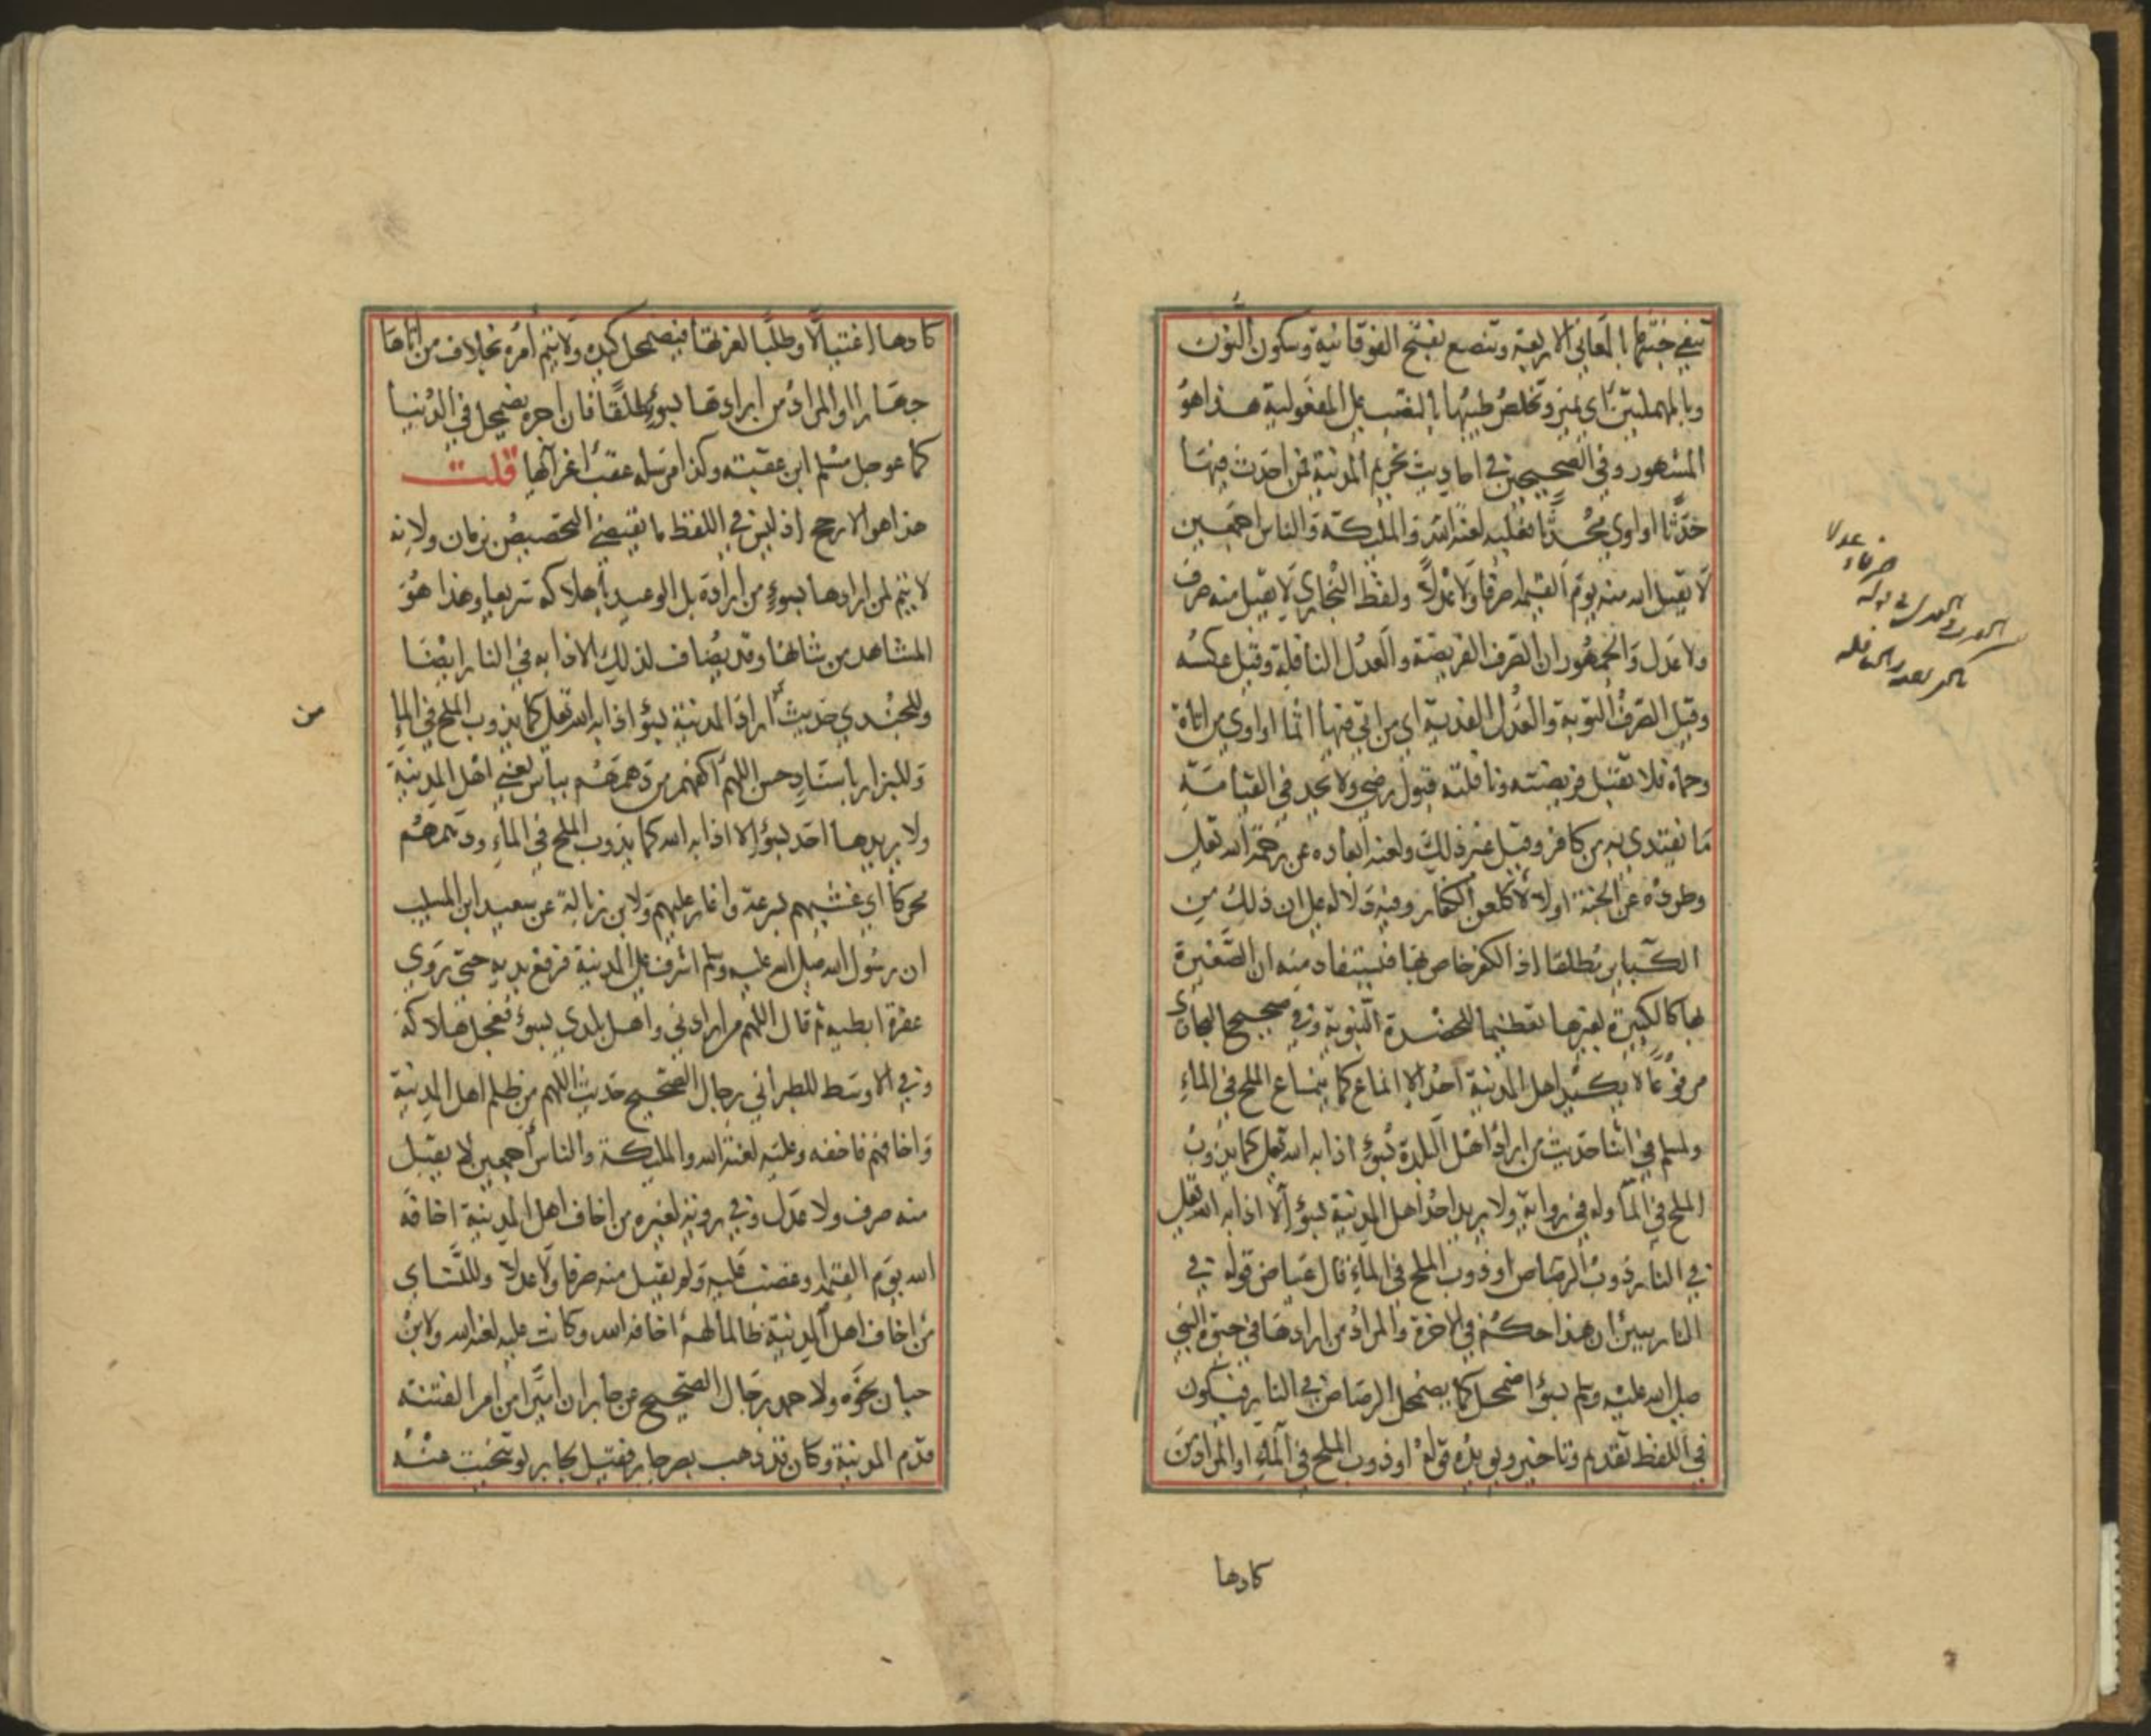 تنفي خبثها بالمعاني الاربعة وتنصع بفتح الفوقانية وسكون النون
وبالمهملتين اي تميز وتخلص طيبها بالنصب على المفعولية هذا هو
المشهور وفي الصحيحين في احاديث تحريم المدينة فمن احدث فيها
حدثا او اوى محدثا فعليه لعنة الله والمليكة والناس اجمعين
لا يقبل الله منه يوم القيمة صرفا ولا عدلا ولفظ البخاري لا يقبل منه صرف
ولا عدل والجمهور ان الصرف الفريضة والعدل النافلة وقيل عكسه
وقيل الصرف التوبة والعدل الفدية اي من اتى فيها اثما او اوى من اتاه
وحماه فلا تقبل فريضته ونافلته قبول رضى ولا يجد في القيامة
ما يفتدي به من كافر وقيل غير ذلك ولعنه ابعاده عن رحمة الله تعلى
وطرده عن الجنة اولا لا كلعن الكفار وفيه دلالة على ان ذلك من
الكباير مطلقا اذ الكفر خاص بها فيستفاد منه ان الصغيرة
بها كالكبيرة بغيرها تعظيما للحضرة النبوية وفي صحيح البخاري
مرفوعا لا يكيد اهل المدينة احد الا انماع كما ينماع الملح في الماء
ولمسلم في اثنا حديث من اراد اهل البلدة بسوء اذابه الله تعلى كما يذوب
الملح في الما وله في رواية ولا يريد احد اهل المدينة بسوء الا اذابه الله تعلى
في النار ذوب الرصاص او ذوب الملح في الماء قال عياض قوله في
النار يبين ان هذا حكمه في الاخرة والمراد من ارادها في حيوة النبي
صلى الله عليه وسلم بسوء اضمحل كما يضمحل الرصاص في النار فيكون
في اللفظ تقديم وتاخير ويويده قوله او ذوب الملح في الماء او المراد من
كادها
صرفا ولا عدلا
كادها اغتيالا وطلبا لغرتها فيضمحل كيده ولا يتم امره بخلاف من اتاها
جهارا او المراد من ارادها بسوء مطلقا فان امره يضمحل في الدنيا
كما عوجل مسلم ابن عقبة وكذا مرسله عقب اغزايها قلت
هذا هو الارجح اذ ليس في اللفظ ما يقتضي التخصيص بزمان ولانه
لا يتم لمن ارادها بسوء من اراده بل الوعيد باهلاكه سريعا وهذا هو
المشاهد من شانها وقد يضاف لذلك الاذابه في النار ايضا
وللجندي حديث من اراد المدينة بسوء اذابه الله تعلى كما يذوب الملح في الماء
من
وللبزار باسناد حسن اللهم اكفهم من دهمهم بباس يعني اهل المدينة
ولا يريدها احد بسوء الا اذابه الله كما يذوب الملح في الماء ودهمهم
محركا اي غشيهم بسرعة واغار عليهم ولابن زبالة عن سعيد ابن المسيب
ان رسول الله صلى الله عليه وسلم اشرف على المدينة فرفع يديه حتى روي
عفرة ابطيه ثم قال اللهم من ارادني واهل بلدي بسوء فعجل هلاكه
وفي الاوسط للطبراني برجال الصحيح حديث اللهم من ظلم اهل المدينة
واخافهم فاخفه وعليه لعنة الله والمليكة والناس اجمعين لا يقبل
منه صرف ولا عدل وفي رواية لغيره من اخاف اهل المدينة اخافه
الله يوم القيمة وغضب عليه ولم يقبل منه صرفا ولا عدلا وللنساي
من اخاف اهل المدينة ظالما لهم اخافه الله وكانت عليه لعنة الله ولابن
حبان نحوه ولاحمد برجال الصحيح عن جابر ان اميرا من امرا الفتنة
قدم المدينة وكان قد ذهب بصر جابر فقيل لجابر لو تنحيت عنه